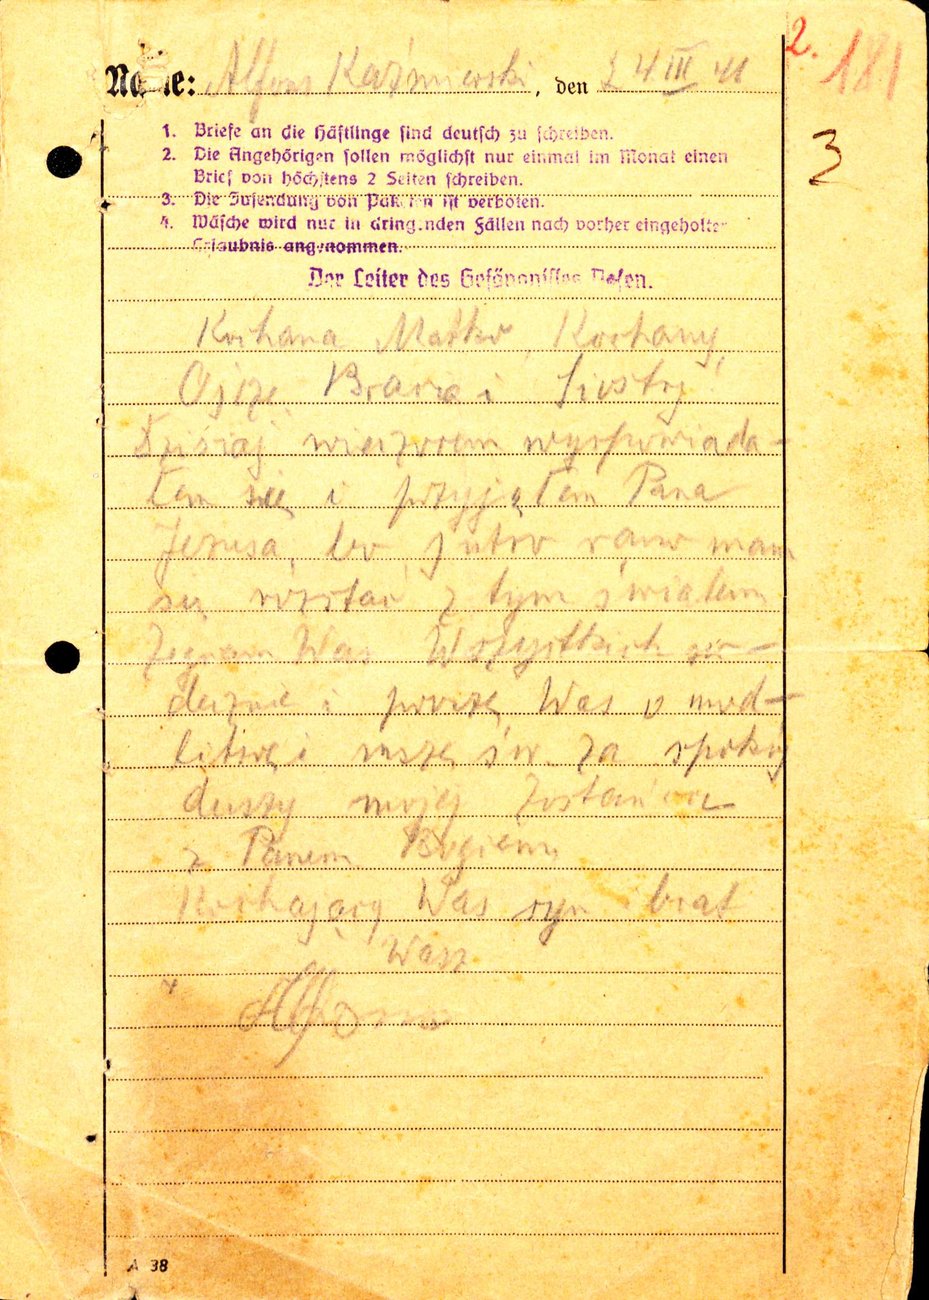 2. 181
Name: Alfons Kaźmierski, den 24 III 41
3
1. Briefe an die Häftlinge sind deutsch zu schreiben.
2. Die Angehörigen sollen möglichst nur einmal im Monat einen
Brief von höchstens 2 Seiten schreiben.
3. Die Zusendung von Paketen ist verboten.
4. Wäsche wird nur in dringenden Fällen nach vorher eingeholter
Erlaubnis angenommen.
Der Leiter des Gefängnisses Posen.
Kochana Matko, Kochany
Ojcze, Bracia i Siostry!
Dzisiaj wieczorem wyspowiada-
łem się i przyjąłem Pana
Jezusa, bo jutro rano mam
się rozstać z tym światem
Żegnam Was Wszystkich ser-
decznie i proszę Was o mod-
litwę i mszę św. za spokój
duszy mojej Zostańcie
z Panem Bogiem
Kochający Was syn i brat
Wasz
Alfons
A 38